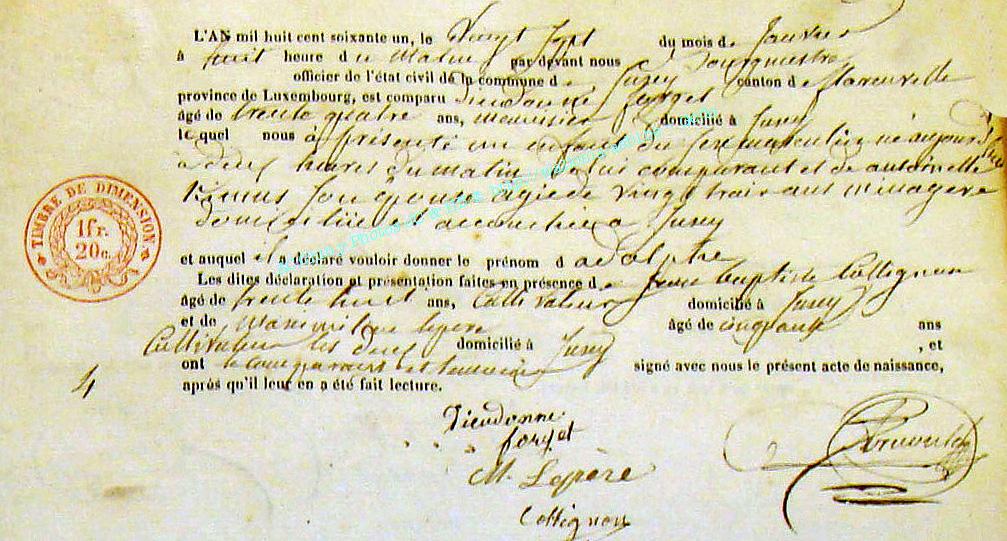 L'AN mil huit cent soixante un, le Vingt Sept du mois de Janvier
à huit heure du Matin par devant nous Bourgmestre
officier de l'état civil de la commune de Jusey canton de
province de Luxembourg, est comparu Dieudonné forget
âgé de trente quatre ans, domicilié à Jusey
lequel nous à présenté un enfant du Sexe masculin né aujourd'hui
à deux heures du matin de lui comparant et de antoinette
Son épouse agée de vingt trois ans ménagère
domiciliée et accouchée a Jusey
et auquel il a déclaré vouloir donner le prénom d adolphe
Les dites déclaration et présentation faites en présence de Jean baptiste Collignon
âgé de trente huit ans, Cultivateur domicilié à Jusey
et de Maximilien lepère âgé de cinquante ans
Cultivateur les deux domicilié à Jusey , et
ont le comparant et témoins signé avec nous le présent acte de naissance,
après qu'il leur en a été fait lecture.
TIMBRE DE DIMENSION
1fr.
20c.
4
Dieudonne
forget
M. Lepère
Collignon